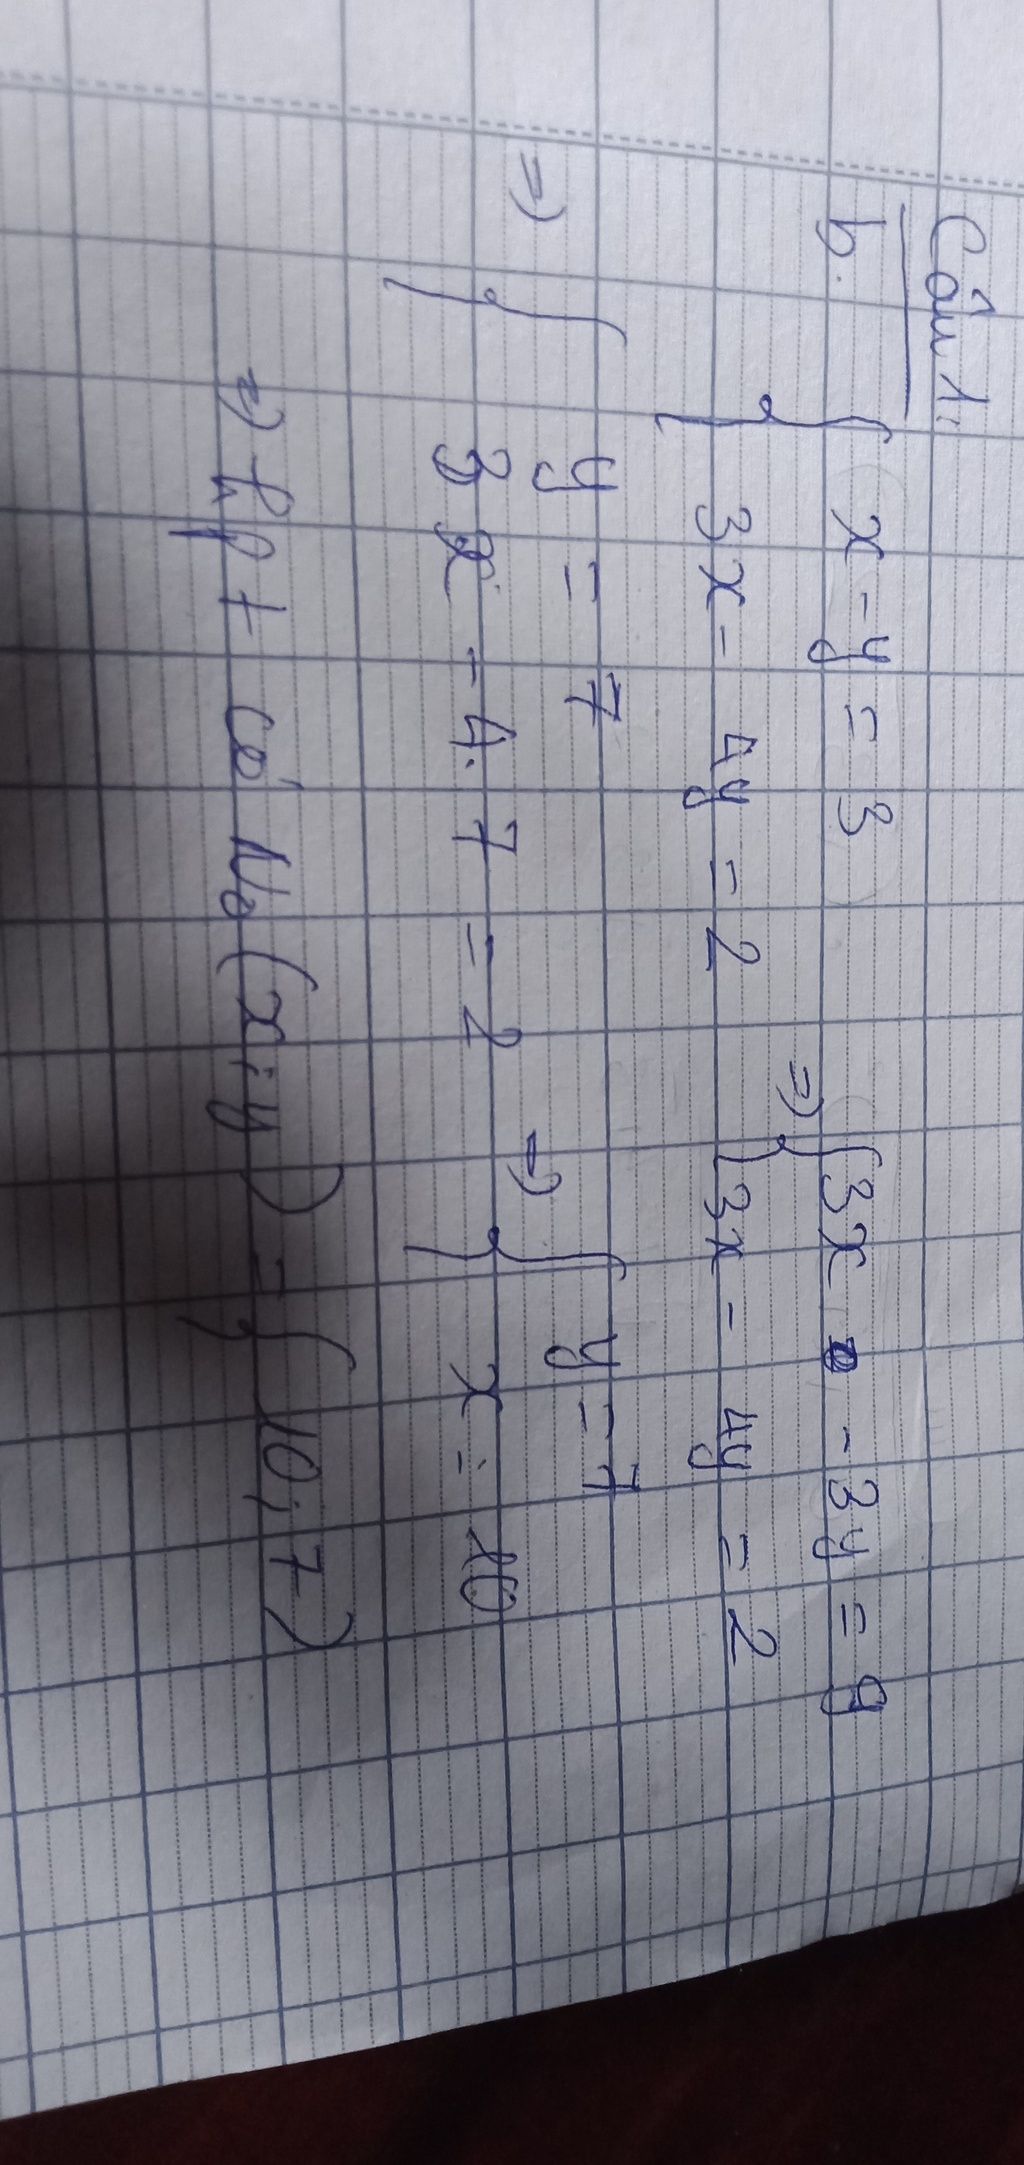 Câu 1:
b. { x - y = 3
3x - 4y = 2
=> { 3x - 3y = 9
3x - 4y = 2
=> { y = 7
3x - 4.7 = 2
=> { y = 7
x = 10
=> hpt có No (x;y) = { 10; 7)